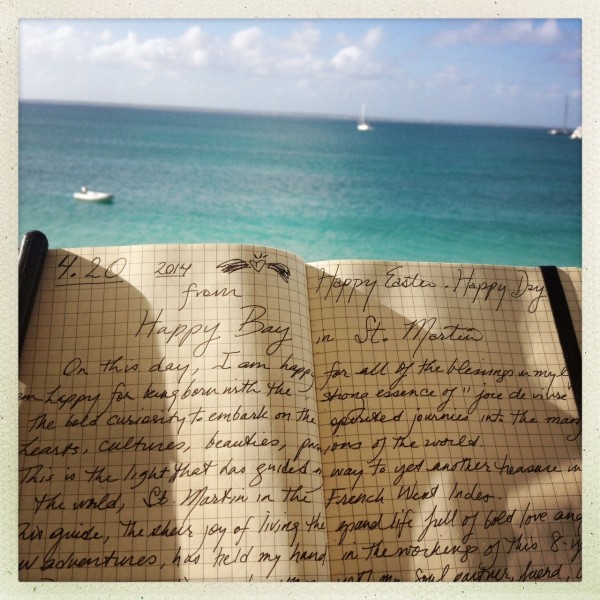 4.20 2014 Happy Easter. Happy Day
from
Happy Bay in St. Martin
On this day, I am happy for all of the blessings in my
am happy for being born with the strong essence of "joie de vivre"
the bold curiosity to embark on the spirited journies into the many
hearts, cultures, beauties, passions of the world.
This is the light that has guided my way to yet another treasure in
the world, St Martin in the French West Indes.
guide, the sheer joy of living the grand life full of bold love and
adventures, has held my hand in the workings of this 8-
my soul partner,